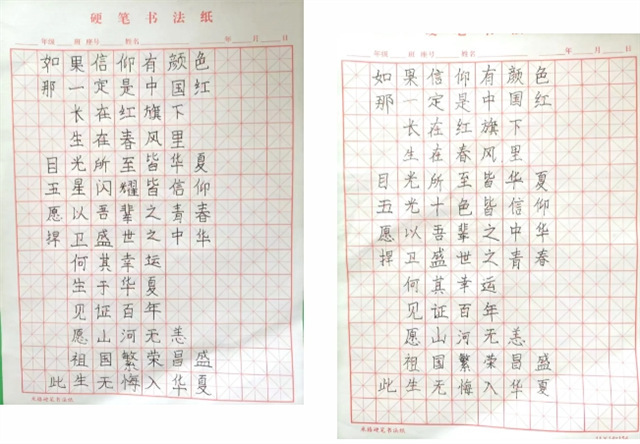 硬笔书法纸
年级 班 座号 姓名 年 月 日
如果信仰有颜色
那一定是中国红
长在红旗下
生在春风里
目光所至皆华夏
五星闪耀皆信仰
愿以吾辈之青春
捍卫盛世之中华
何其幸运
生于华夏
见证百年
愿山河无恙
祖国繁荣昌盛
此生无悔入华夏
米格硬笔书法纸
年级 班 座号 姓名 年 月 日
如果信仰有颜色
那一定是中国红
长在红旗下
生在春风里
目光所至皆华夏
五光十色皆信仰
愿以吾辈之中华
捍卫盛世之青春
何其幸运
见证百年
愿山河无恙
祖国繁荣昌盛
此生无悔入华夏
米格硬笔书法纸